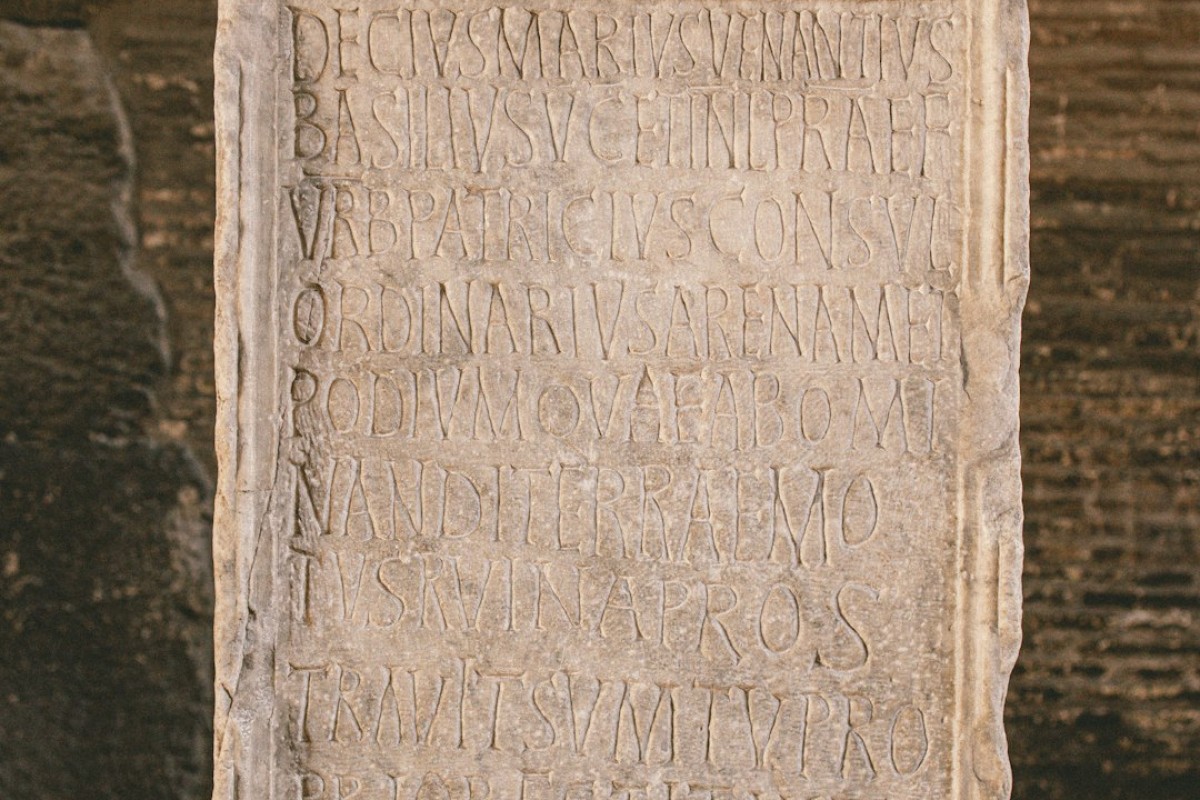 DECIVSMARIVSVENANTIVS
BASILIVSVCETINLPRAEF
VRBPATRICIVSCONSVL
ORDINARIVSARENAMET
PODIVMQVAEABOMI
NANDITERRAEMO
TVSRVINAPROS
TRAVITSVMTVPRO